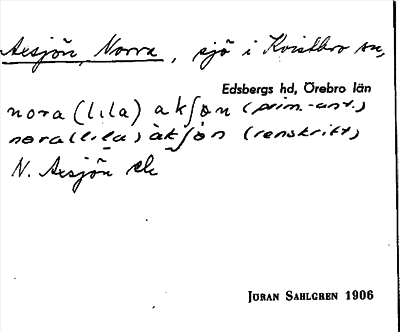 Axsjön, Norra, sjö i Kvistbro sn,
Edsbergs hd, Örebro län
nora (lila) akʃøn (prim.-ant.)
nora (lila) àkʃøn (renskrift)
N. Axsjön ek
JÖRAN SAHLGREN 1906